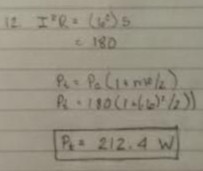 12. I²R = (6²)5
= 180
Pt = Pc (1+m²/2)
Pt = 180(1+(.6)²/2))
Pt = 212.4 W